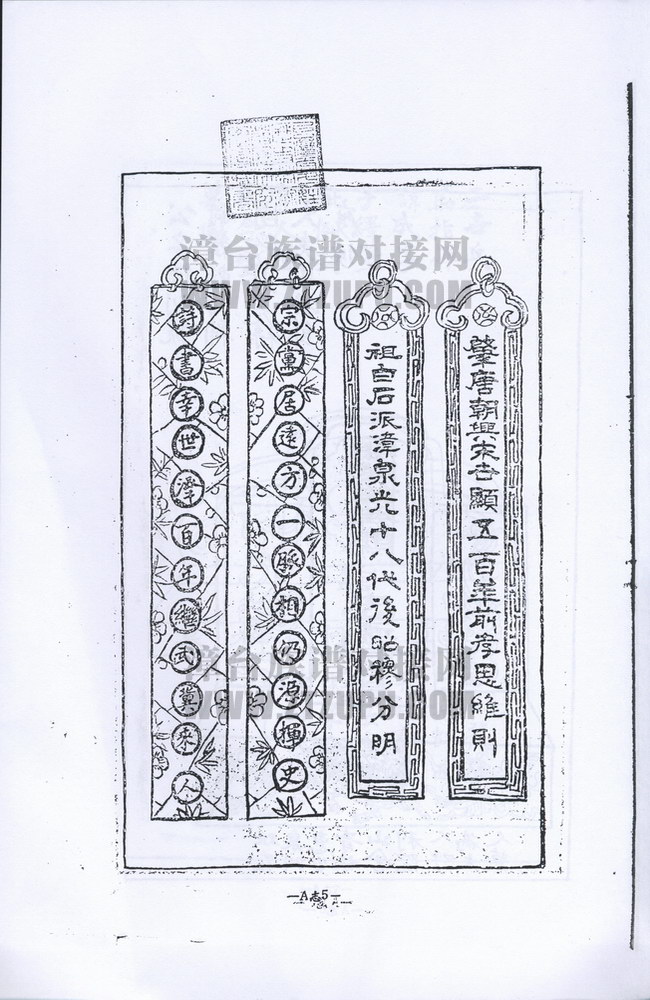 漳台族谱对接网
WWW.ZTZUPU.COM
肇唐朝興宋杏顯五百年前孝思維則
祖白石派漳泉光十八代後昭穆分明
宗黨居遠方一脈相仍源揮史
詩書幸世澤百年繼武冀來人
漳台族谱对接网
WWW.ZTZUPU.COM
—A志5—